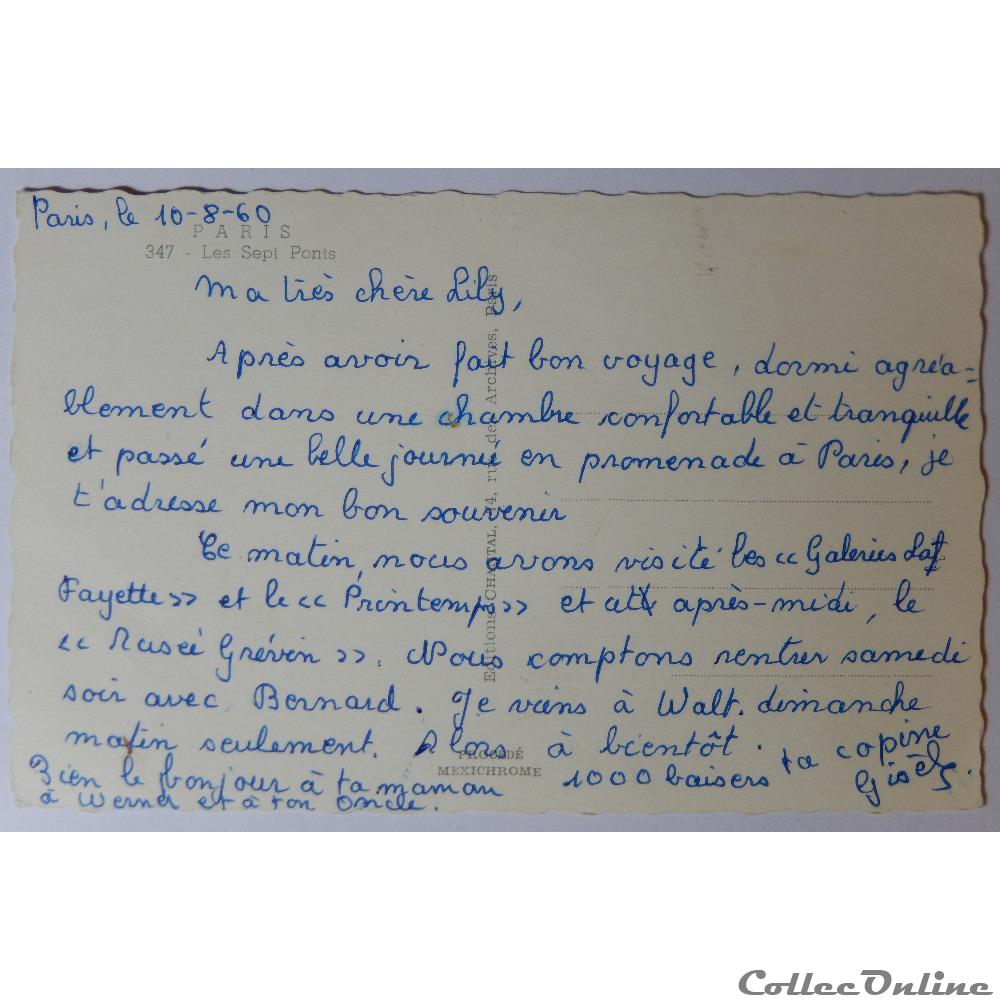 Paris, le 10-8-60
PARIS
347 - Les Sept Ponts
Ma très chère Lily,
Après avoir fait bon voyage, dormi agréa-
blement dans une chambre confortable et tranquille
et passé une belle journée en promenade à Paris, je
t'adresse mon bon souvenir
Ce matin, nous avons visité les « Galeries Laf
Fayette » et le « Printemps » et après-midi, le
« Musée Grévin ». Nous comptons rentrer samedi
soir avec Bernard. Je viens à Walt. dimanche
matin seulement. Alors à bientôt.
1000 baisers ta copine
Gisèle.
Bien le bonjour à ta maman
à Werner et à ton Oncle.
Editions CHANTAL, rue des Archives, Paris
PROCÉDÉ
MEXICHROME
CollecOnline